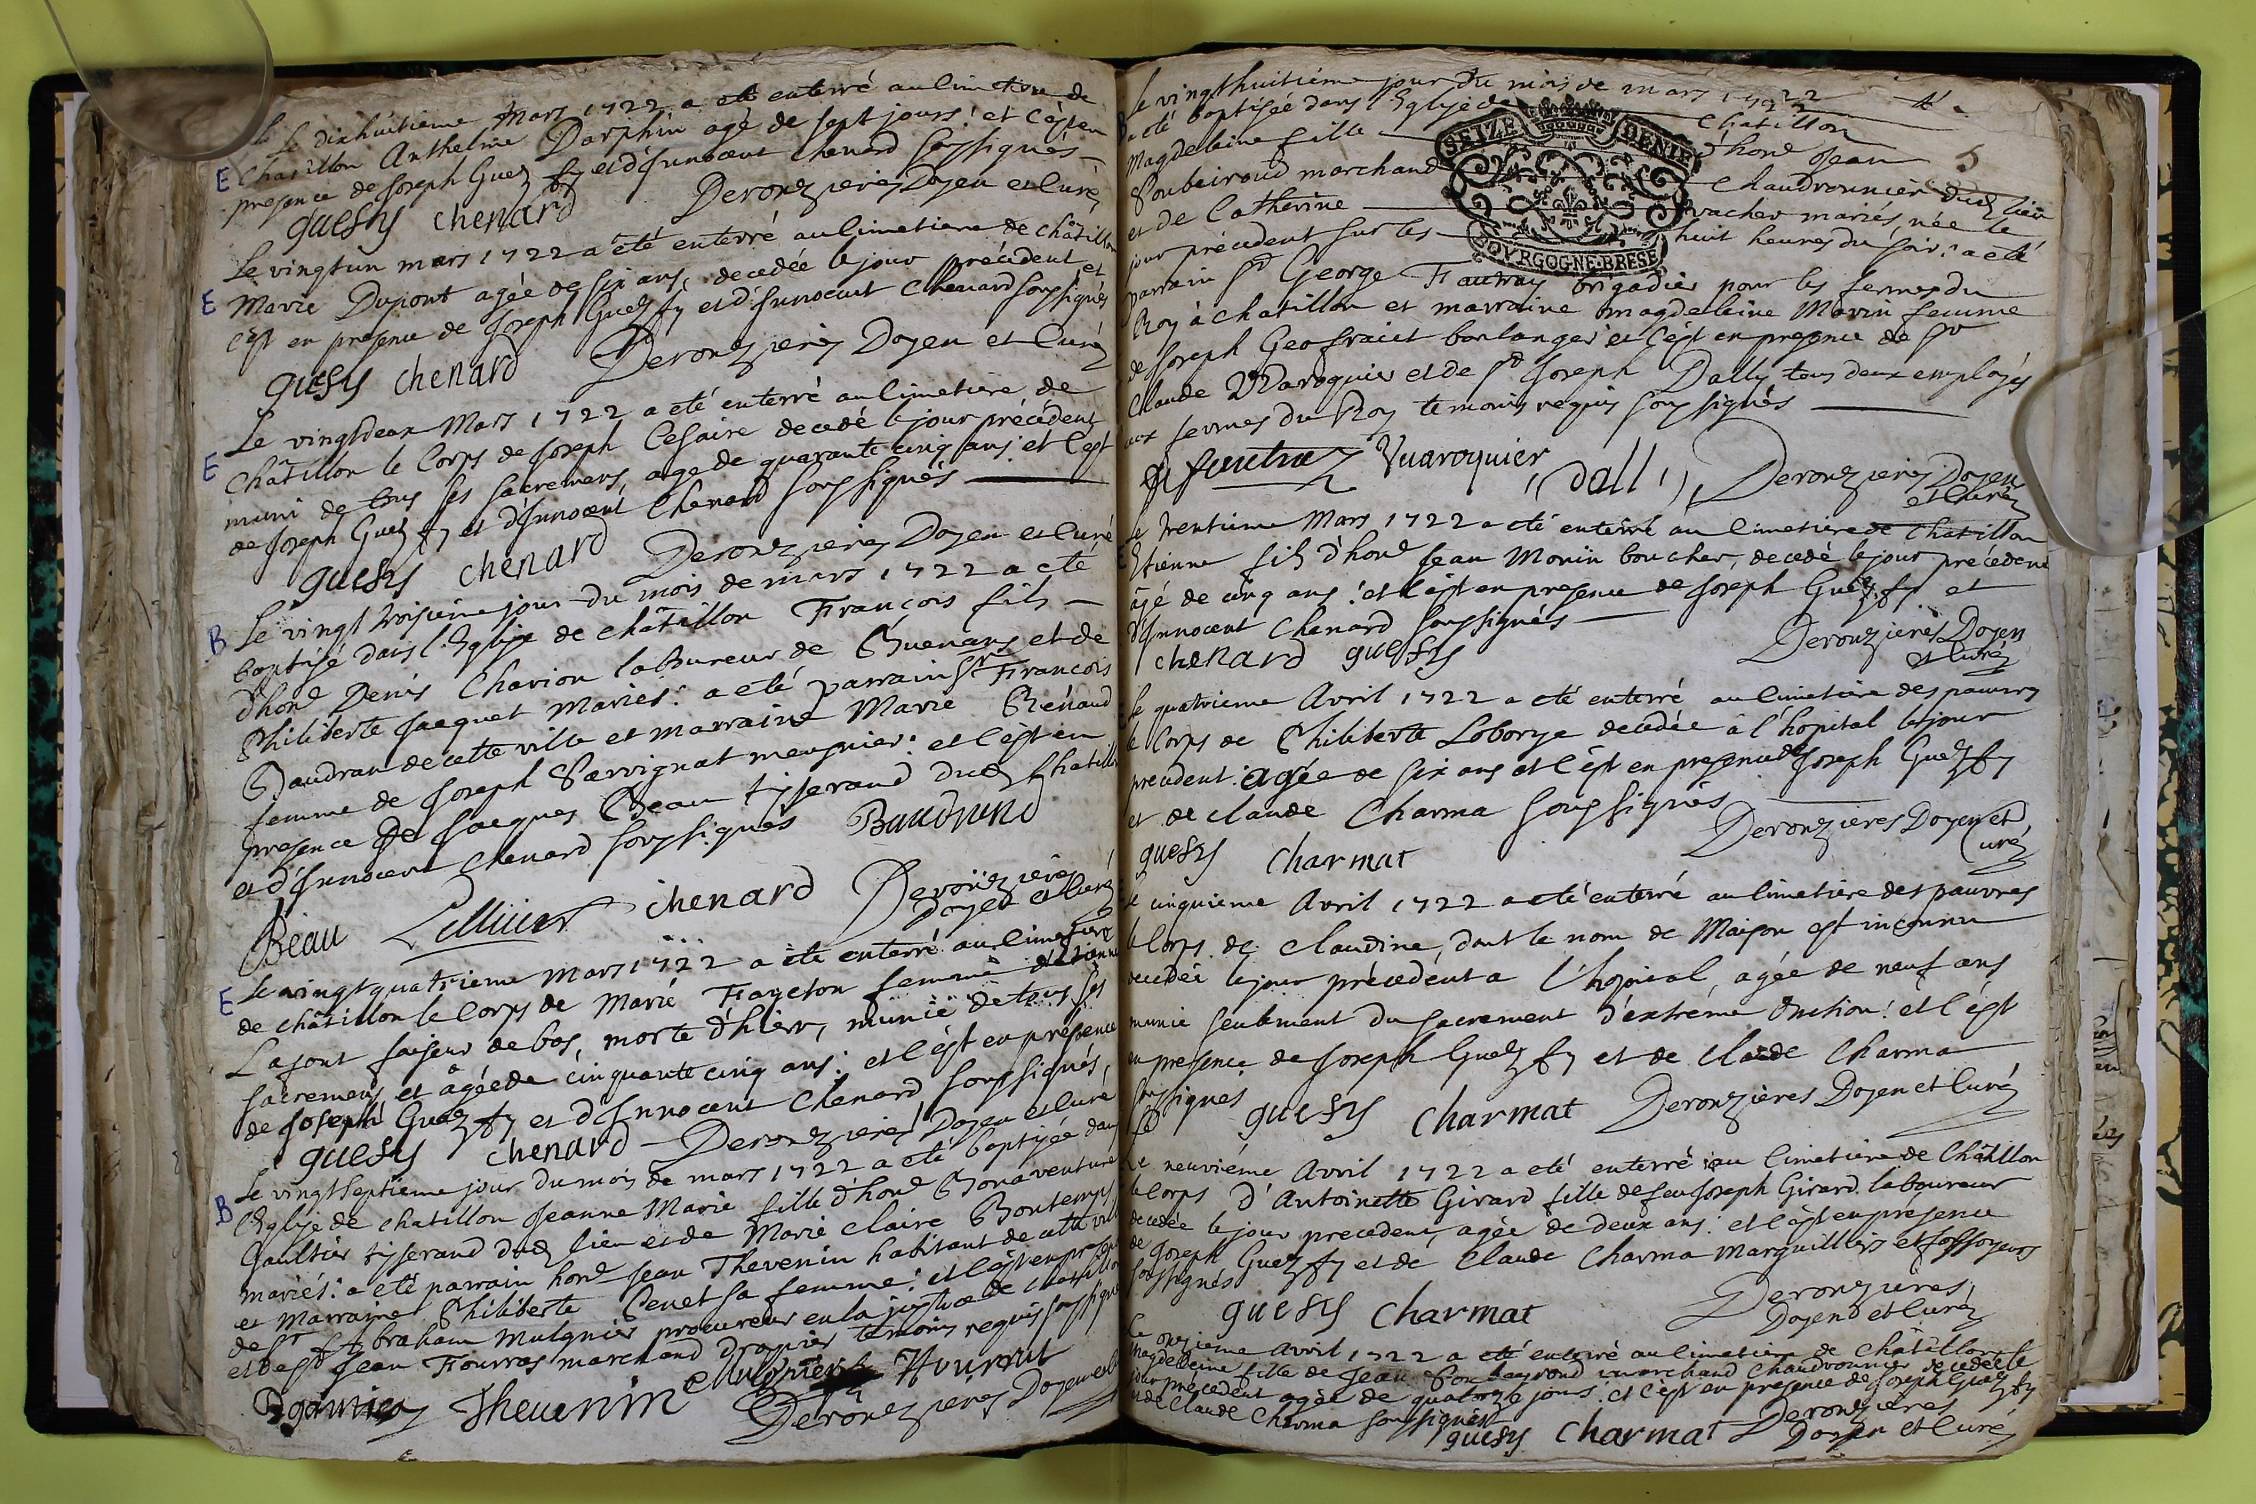 Le dixhuitieme Mars 1722 a eté enterré au Cimetiere de
E Chatillon Anthelme Darphin agé de sept jours: et c'est en
presence de Joseph Guez fy et d'Innocent Chenard soussignés
guesfy chenard Deronzieres Doyen et Curé
Le vingtun mars 1722 a été enterré au Cimetiere de châtillon
E Marie Dupont agée de six ans, decedée le jour précédent et
c'est en presence de Joseph Guez fy et d'Innocent Chenard soussignés
guesfy chenard Deronzieres Doyen et Curé
Le vingtdeux Mars 1722 a eté enterré au Cimetiere de
E Châtillon le Corps de Joseph Cesaire decedé le jour précédent
muni de tous ses sacremens, agé de quarante cinq ans: et c'est
de Joseph Guez fy et d'Innocent Chenard soussignés
guesfy chenard Deronzieres Doyen et Curé
B Le vingt troisieme jour du mois de mars 1722 a eté
baptisé dans l'Eglise de châtillon François fils
d'hone Denis Charion laboureur de Buenans et de
Philiberte Jacquet mariés: a eté parrain Sr François
Baudran de cette ville et marraine Marie Renaud
femme de Joseph Parvignat meusnier: et c'est en
presence de Jacques Beau tisserand dud Chatillon
et d'Innocent Chenard soussignés Baudrand
Beau chenard Deronzieres
Doyen et Curé
E Le vingtquatrieme Mars 1722 a été enterré au Cimetiere
de châtillon le Corps de Marie Fayeton femme d'Etienne
Lafont faiseur de bas, morte d'hier, munie de tous ses
sacremens, et âgée de cinquante cinq ans: et c'est en presence
de Joseph Guez fy et d'Innocent Chenard soussignés,
guesfy chenard Deronzieres Doyen et Curé
B Le vingtseptieme jour du mois de mars 1722 a eté baptisée dans
l'Eglise de chatillon Jeanne Marie fille d'hone Bonaventure
Gaultier tisserand dud lieu et de Marie Claire Bontemps
mariés: a eté parrain hone Jean Thevenin habitant de cette ville
et Marraine Philiberte Cenet sa femme: et c'est en presence
de Sr Abraham Mulgnier procureur en la justice de Chatillon
et de Sr Jean Fourras marchand drapier temoins requis soussignés
Thevenin Mulgnier Fourrat
Deronzieres Doyen et Curé
Le vingthuitiéme jour du mois de mars 1722
a eté baptisée dans l'Eglise de Chatillon
Magdeleine fille d'hone Jean 5
Soubeiroud marchand Chaudronnier dud lieu
et de Catherine Vacher mariés, née le
jour précédent sur les huit heures du soir: a eté
SEIZE DENIE
BOVRGOGNE·BRESE
parrain Sr George Fautray brigadier pour les fermes du
Roy à chatillon et marraine Magdeleine Morin femme
de Joseph Geofraict boulanger et c'est en presence de Sr
Claude Waroquier et de Sr Joseph Dally tous deux employés
aux fermes du Roy temoins requis soussignés
g fautray Vuaroquier Dally Deronzieres Doyen
et Curé
Le trentieme Mars 1722 a eté enterré au Cimetiere de Chatillon
Etienne fils d'hone Jean Monin boucher, decedé le jour précédent
âgé de cinq ans: et c'est en presence de Joseph Guez fy et
d'Innocent Chenard soussignés
chenard guesfy Deronzieres Doyen
et Curé
Le quatrieme Avril 1722 a eté enterré au Cimetiere des pauvres
le Corps de Philiberte Loborye decedée à l'hôpital le jour
precedent: agée de six ans et c'est en presence de Joseph Guez fy
et de Claude Charma soussignés
guesfy Charmat Deronzieres Doyen et
Curé
Le cinquieme Avril 1722 a eté enterré au Cimetiere des pauvres
le Corps de Claudine, dont le nom de Maison est inconnu
decedée le jour précedent a l'hopital, agée de neuf ans
munie seulement du sacrement d'extréme Onction: et c'est
en presence de Joseph Guez fy et de Claude Charma
soussignés guesfy Charmat Deronzieres Doyen et Curé
Le neuviéme Avril 1722 a eté enterré au Cimetiere de Châtillon
le Corps d'Antoinette Girard fille de feu Joseph Girard laboureur
decedée le jour precedent, agée de deux ans: et c'est en presence
de Joseph Guez fy et de Claude Charma Marguilliers et fossoyeurs
soussignés
guesfy Charmat Deronzieres
Doyen et Curé
Le onzieme Avril 1722 a eté enterré au Cimetiere de Châtillon
Magdeleine fille de Jean Soubeyroud marchand Chaudronnier decedée le
jour précedent agée de quatorze jours: et c'est en presence de Joseph Guez fy
et de Claude Charma soussignés
guesfy Charmat Deronzieres
Doyen et Curé